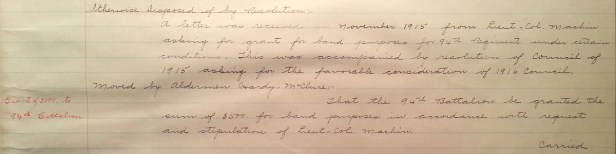 Otherwise Disposed of by Resolution:-
A letter was received November 1915 from Lieut-Col. Machin
asking for grant for band purposes for 94th Regiment under certain
conditions. This was accompanied by resolution of Council of
1915 asking for the favorable consideration of 1916 Council.
Moved by Aldermen Hardy-McClure:-
Grant of $500. to
94th Battalion
That the 94th Battalion be granted the
sum of $500. for band purposes in accordance with request
and stipulation of Lieut-Col. Machin.
Carried